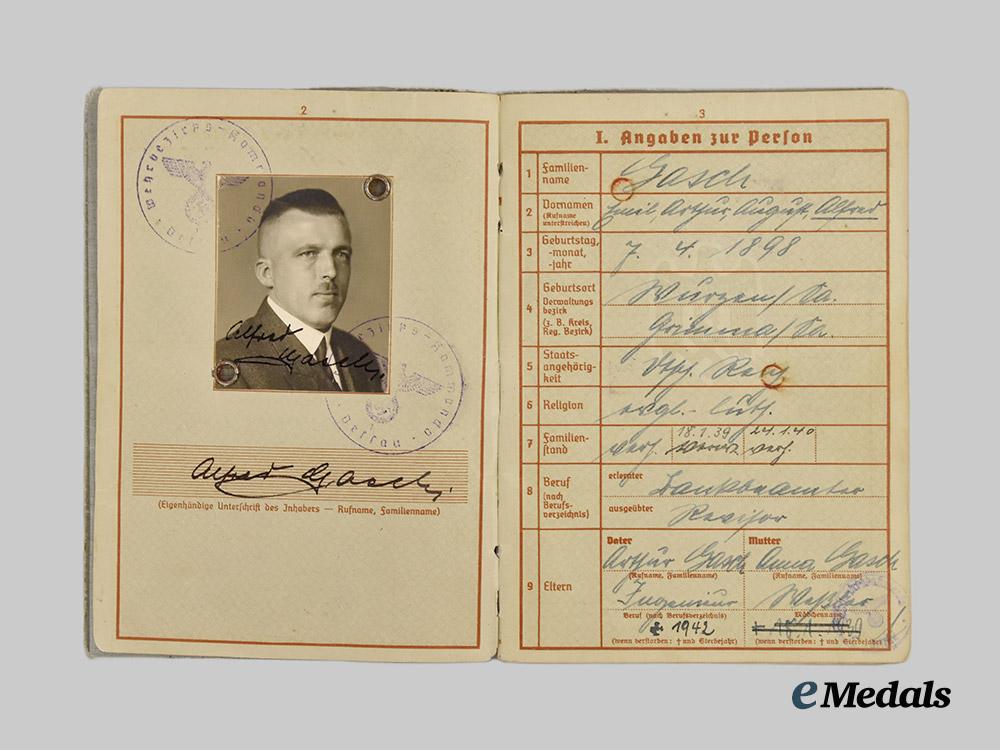 2
Wehrbezirks-Kommando
Dessau
Alfred
Gasch
Wehrbezirks-Kommando
Dessau
Alfred Gasch
(Eigenhändige Unterschrift des Inhabers — Rufname, Familienname)
3
I. Angaben zur Person
1 Familien-
name
Gasch
2 Vornamen
(Rufname
unterstreichen)
Emil, Arthur, August, Alfred
3 Geburtstag,
-monat,
-jahr
7. 4. 1898
4 Geburtsort
Verwaltungs
bezirk
(z. B. Kreis,
Reg. Bezirk)
Wurzen/Sa.
Grimma/Sa.
5 Staats-
angehörig-
keit
Dtsch. Reich
6 Religion
evgl.-luth.
7 Familien-
stand
verh. 18.1.39 verw. 24.1.40 verh.
8 Beruf
(nach
Berufs-
verzeichnis)
erlernter
Bankbeamter
ausgeübter
Revisor
9 Eltern
Vater Mutter
Arthur Gasch Anna Gasch
(Rufname, Familienname) (Rufname, Familienname)
Ingenieur
Beruf (nach Berufsverzeichnis) Mädchenname
1942
(wenn verstorben: † und Sterbejahr) (wenn verstorben: † und Sterbejahr)
eMedals